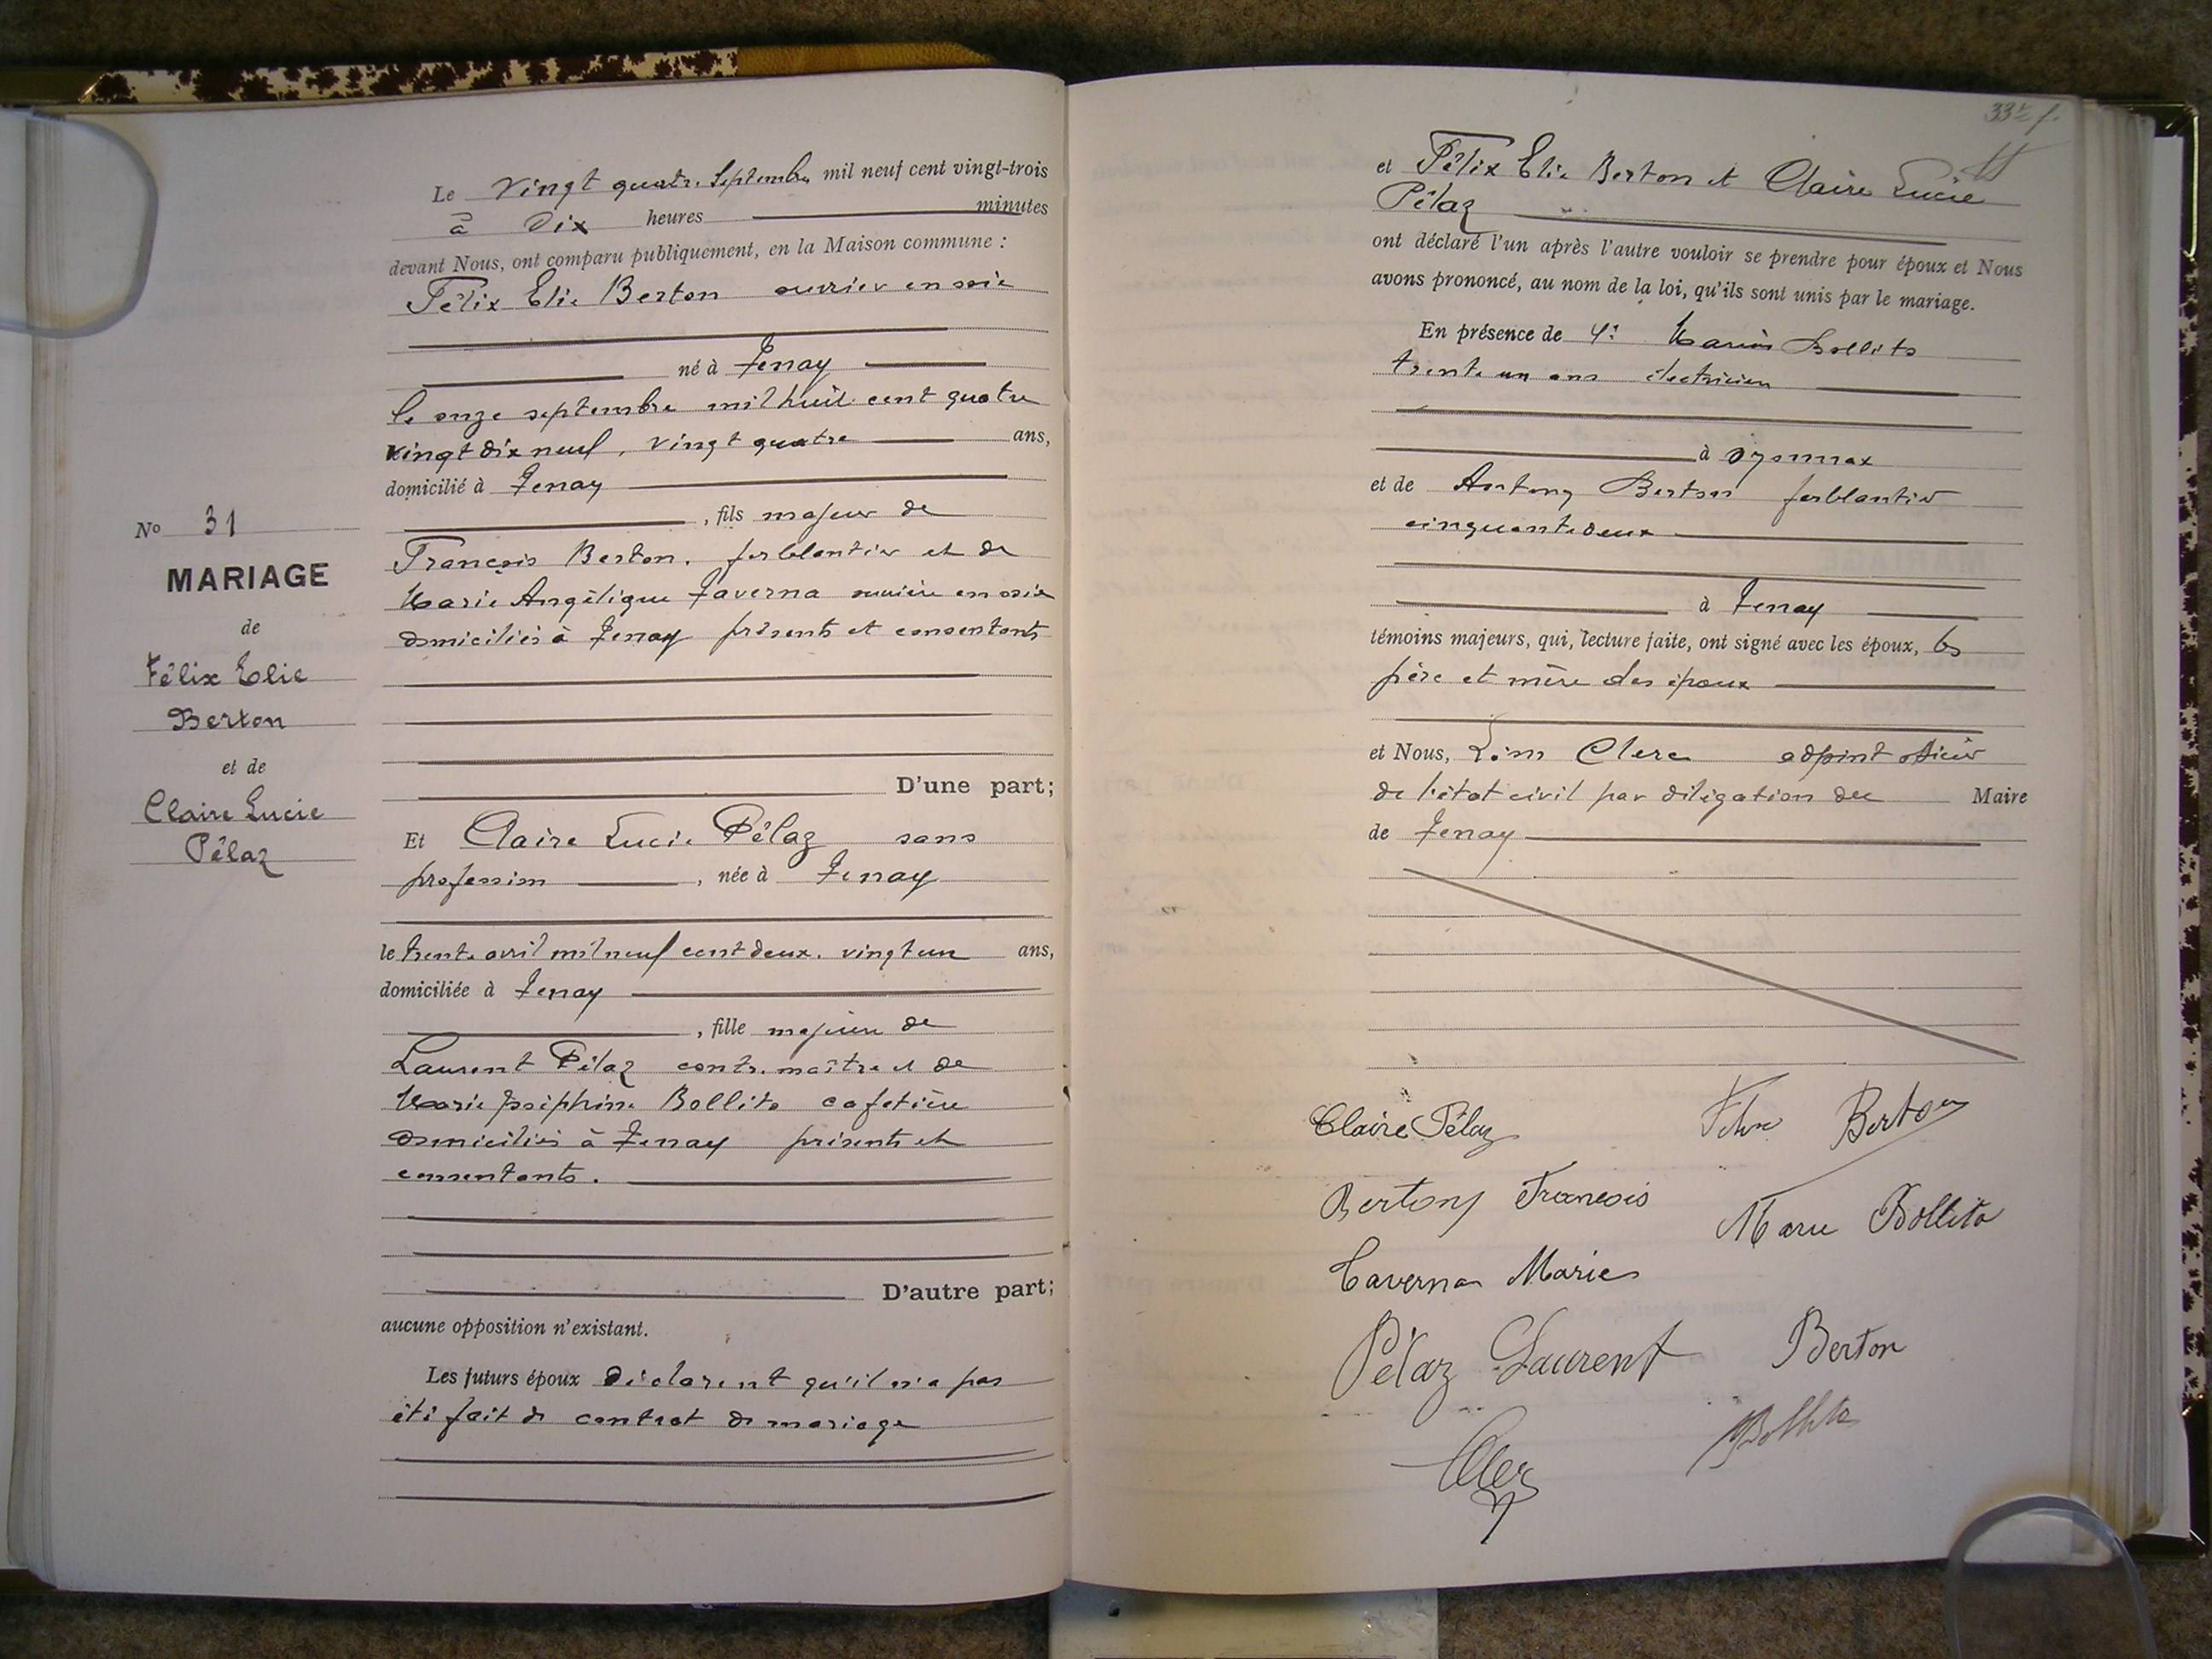 Le Vingt quatre Septembre mil neuf cent vingt-trois
à Dix heures minutes
devant Nous, ont comparu publiquement, en la Maison commune :
Félix Elie Berton ouvrier en soie
né à Tenay
le onze septembre mil huit cent quatre
vingt dix neuf, vingt quatre ans,
domicilié à Tenay
, fils majeur de
François Berton, ferblantier et de
Marie Angélique Taverna ouvrière en soie
domiciliés à Tenay présents et consentants
D'une part;
No 31
MARIAGE
de
Félix Elie
Berton
et de
Claire Lucie
Pélaz
Et Claire Lucie Pélaz sans
profession , née à Tenay
le trente avril mil neuf cent deux. vingt un ans,
domiciliée à Tenay
, fille majeure de
Laurent Pélaz contremaître et de
Marie Joséphine Bollito cafetière
domiciliés à Tenay présents et
consentants.
D'autre part;
aucune opposition n'existant.
Les futurs époux déclarent qu'il n'a pas
été fait de contrat de mariage
et Félix Elie Berton et Claire Lucie
Pélaz
ont déclaré l'un après l'autre vouloir se prendre pour époux et Nous
avons prononcé, au nom de la loi, qu'ils sont unis par le mariage.
En présence de Bollito
trente un ans électricien
à Oyonnax
et de Antony Berton ferblantier
cinquante deux
à Tenay
témoins majeurs, qui, lecture faite, ont signé avec les époux, les
père et mère des époux
et Nous, Léon Clerc adjoint officier
de l'état civil par délégation du Maire
de Tenay
Claire Pélaz Berton
Bertony Francois
Marie Bollito
Taverna Marie
Pélaz Laurent Berton
Bollito
Clerc